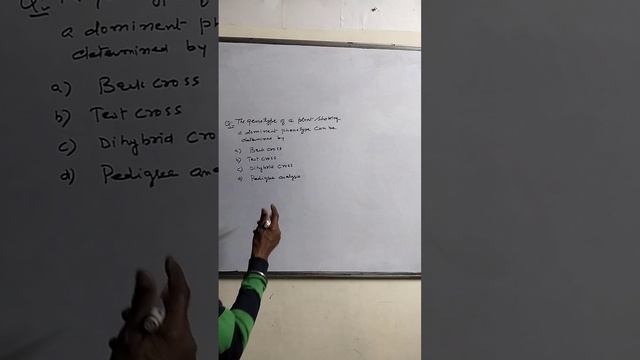 Q. The genotype of a plant showing
a dominant phenotype can be
determined by
a) Back cross
b) Test cross
c) Dihybrid cross
d) Pedigree analysis